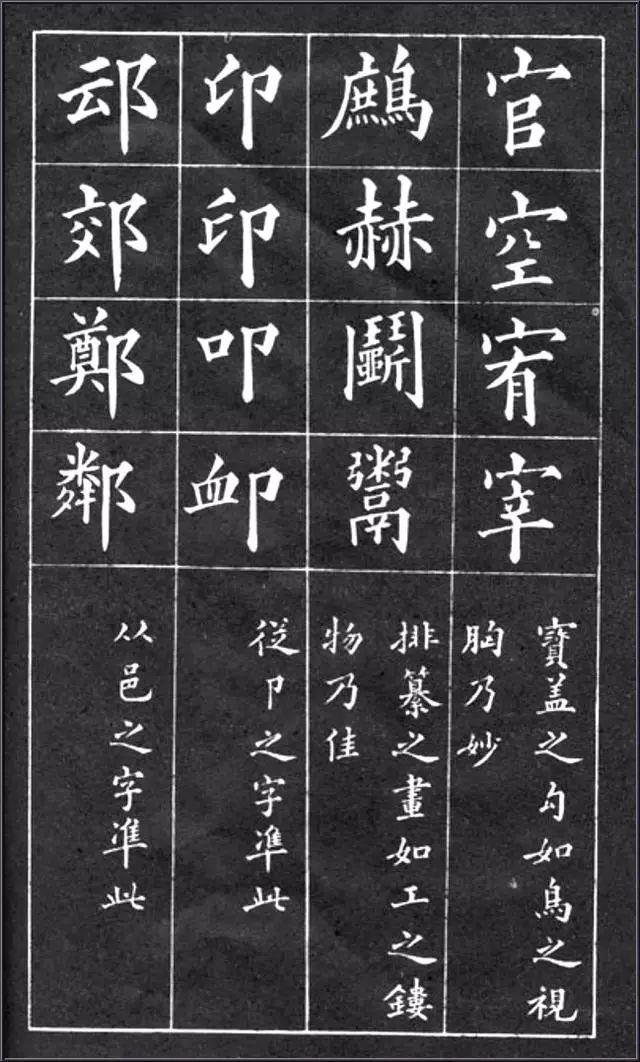 官空宥宰
寶盖之勾如鳥之視
胸乃妙
鷓赫鬭鬻
排纂之畫如工之鏤
物乃佳
印印叩卹
從卩之字準此
䢵郊鄭鄰
从邑之字準此